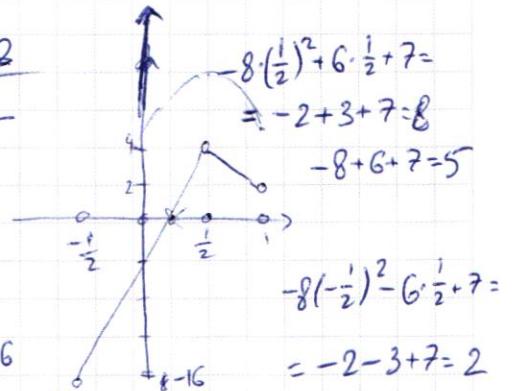 2
-8·(1/2)²+6·1/2+7=
= -2+3+7=8
-8+6+7=5
4
2
-1/2
1/2
1
-8(-1/2)²-6·1/2+7=
= -2-3+7=2
6
-16